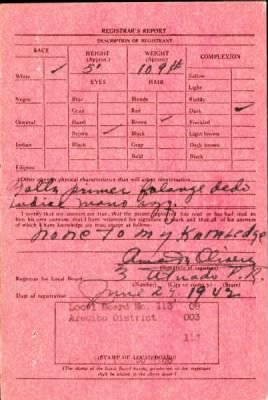 REGISTRAR'S REPORT
DESCRIPTION OF REGISTRANT
RACE
HEIGHT
(Approx.)
WEIGHT
(Approx.)
COMPLEXION
White ✓
5'
109 lbs
Sallow
EYES
HAIR
Light
Negro
Blue
Blonde
Ruddy
Gray
Red
Dark ✓
Oriental
Hazel
Brown ✓
Freckled
Brown ✓
Black
Light brown
Indian
Black
Gray
Dark brown
Bald
Black
Filipino
Other obvious physical characteristics that will aid in identification
Falta primer falange dedo
indice mano izq.
I certify that my answers are true; that the person registered has read or has had read to
him his own answers; that I have witnessed his signature or mark and that all of his answers
of which I have knowledge are true, except as follows:
None to my Knowledge
(Signature of registrar)
Registrar for Local Board
3
Utuado
P.R.
(Number)
(City or county)
(State)
Date of registration
June 27, 1942
Local Board No. 113
Arecibo District
003
(STAMP OF LOCAL BOARD)
(The stamp of the Local Board having jurisdiction of the registrant
shall be placed in the above space.)